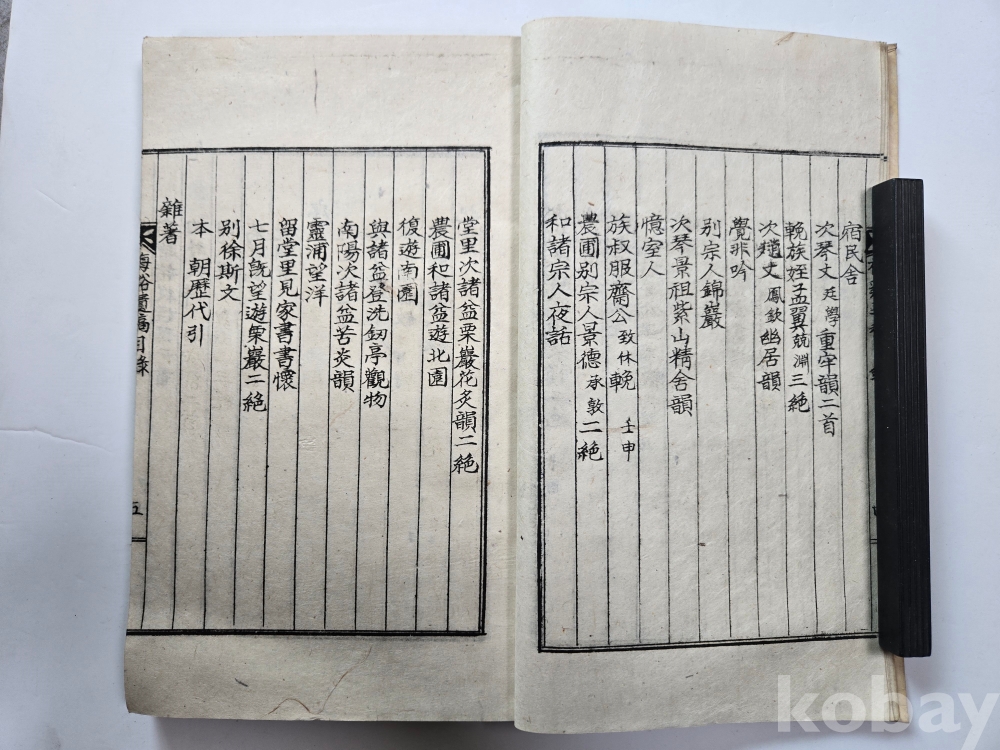 宿民舍
次琴丈廷學重牢韻二首
輓族姪孟翼兢淵三絶
次趙丈鳳欽幽居韻
覺非吟
別宗人錦巖
次琴景祖紫山精舍韻
憶室人
族叔服齋公致休輓 壬申
農圃別宗人景德承敦二絶
和諸宗人夜話
堂里次諸益栗巖花炙韻二絶
農圃和諸益遊北園
復遊南園
與諸益登洗釼亭觀物
南陽次諸益苦炎韻
靈浦望洋
留堂里見家書書懷
七月旣望遊栗巖二絶
別徐斯文
本 朝歷代引
雜著
遺稿目錄
五
kobay